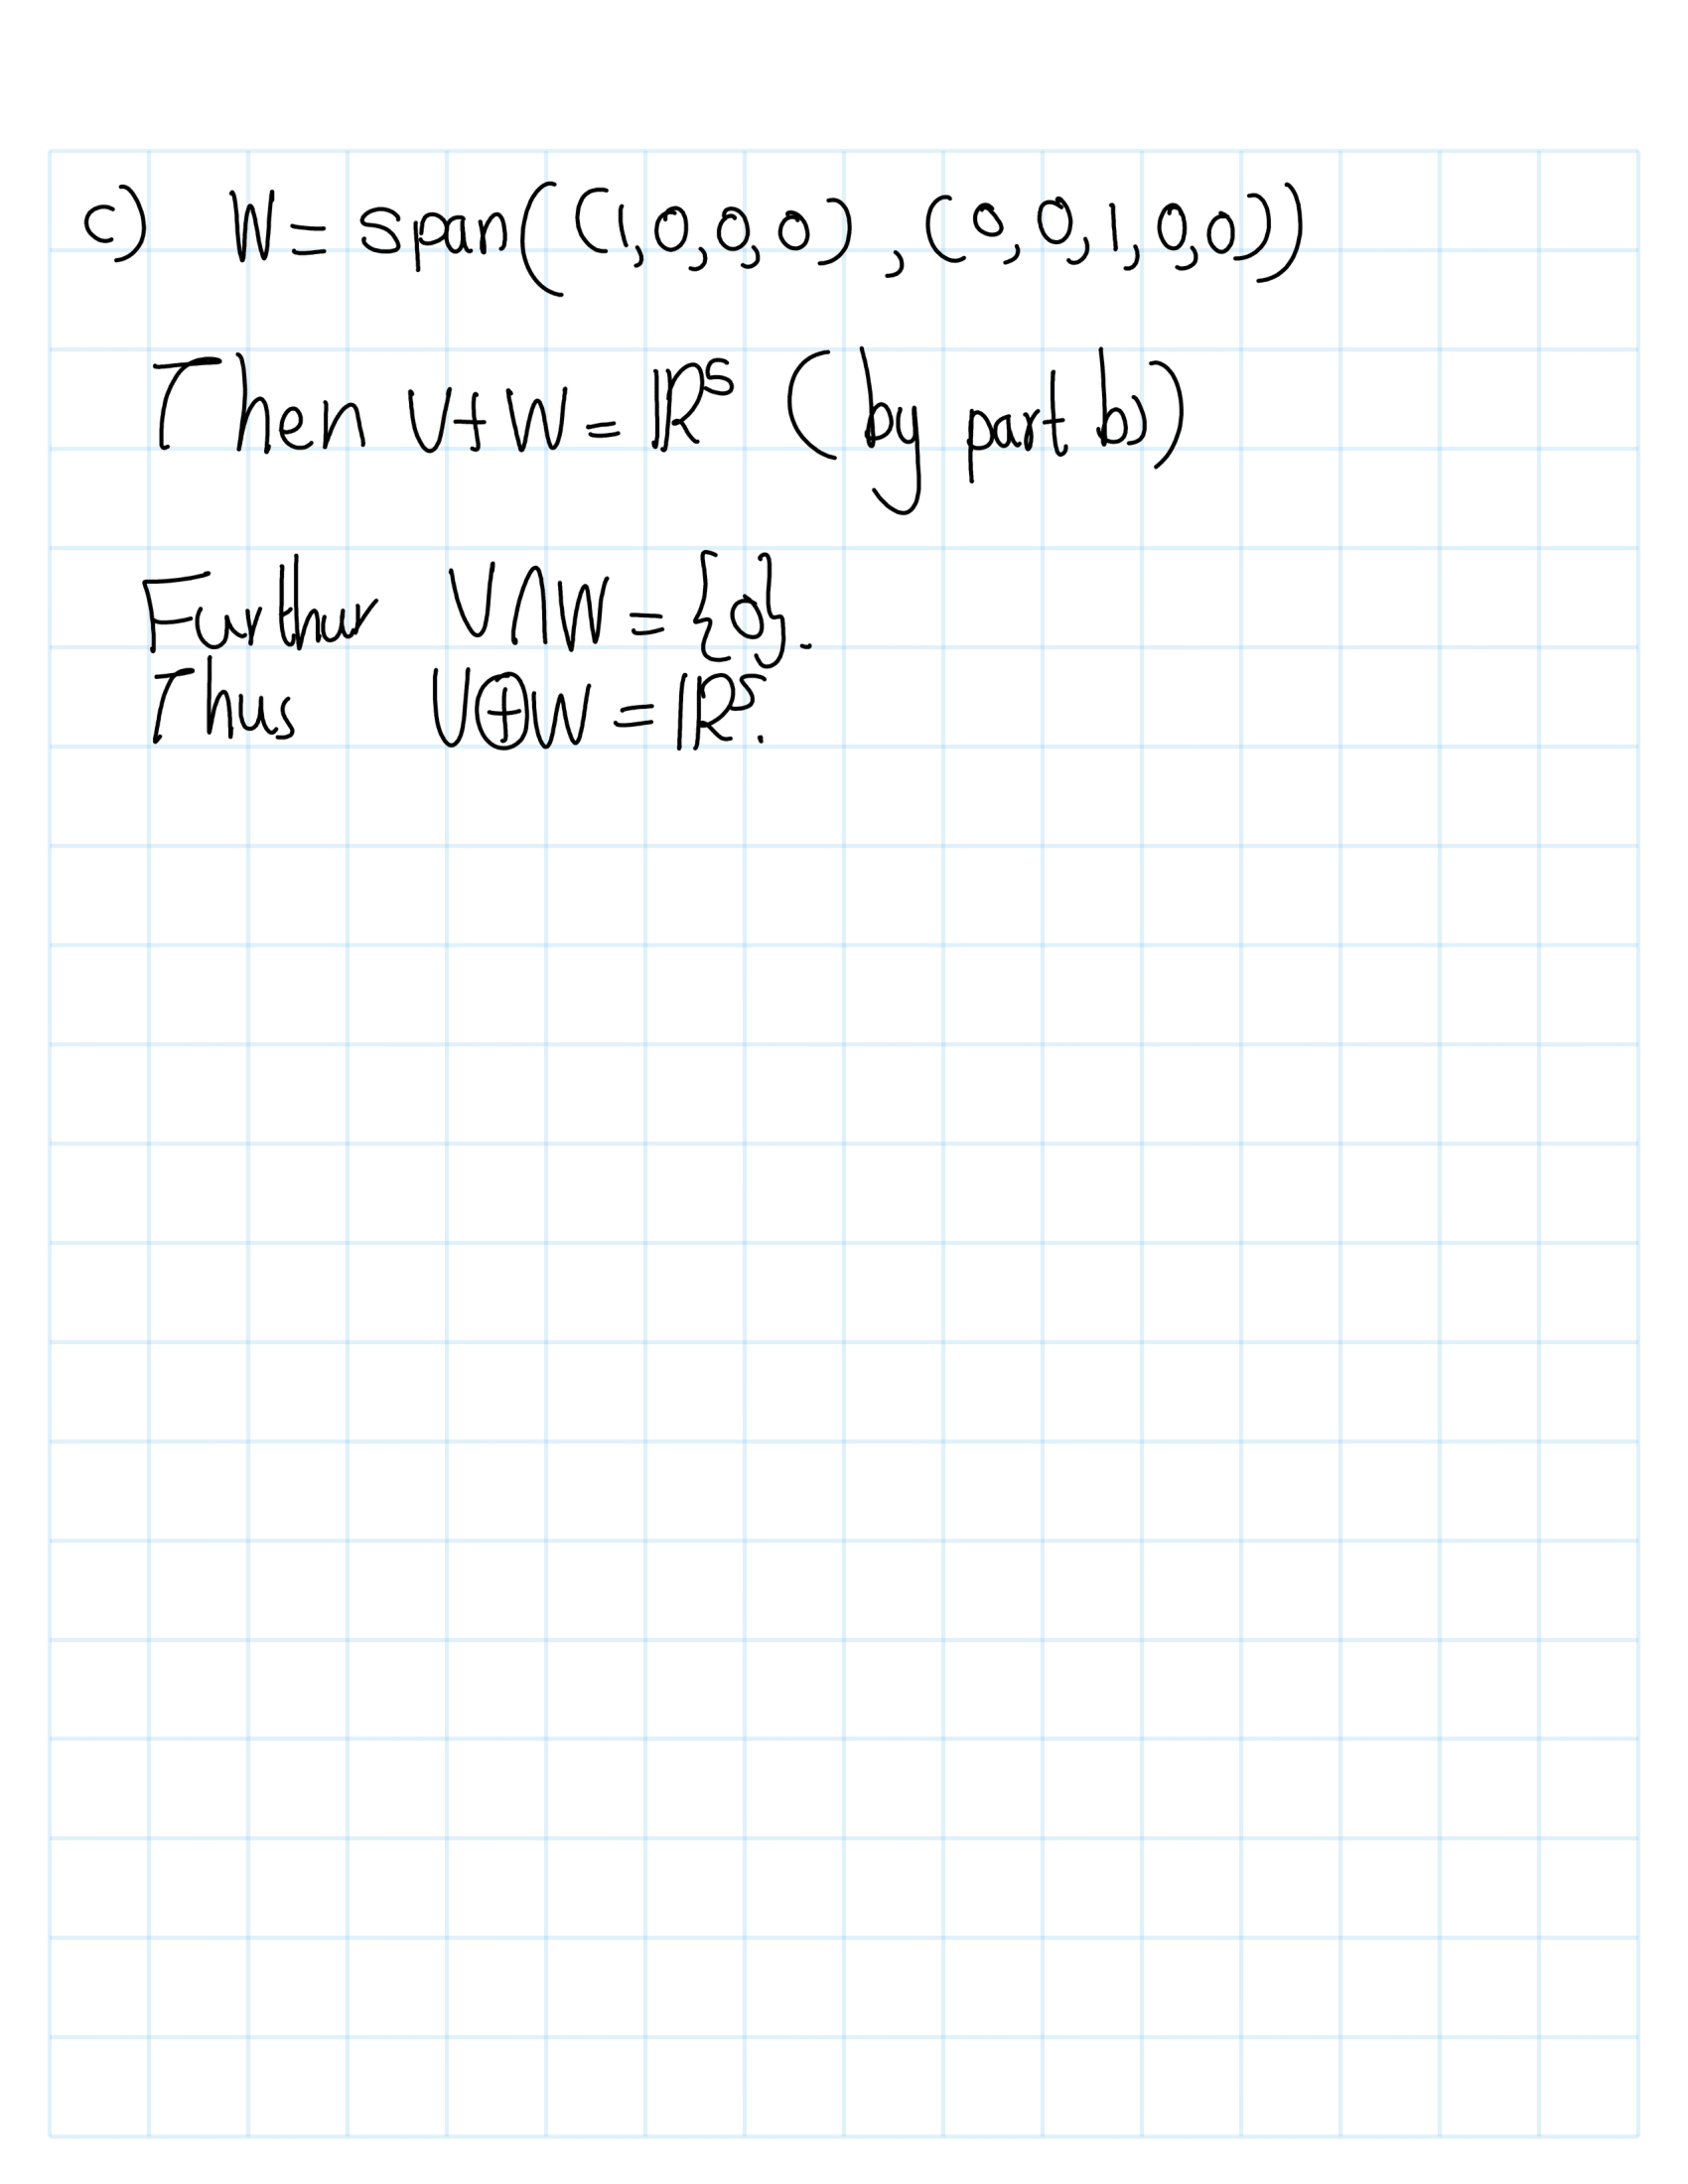 c) W = span((1,0,0,0), (0,0,1,0,0))
Then U+W = ℝ⁵ (by part b)
Further U∩W = {0}.
Thus U⊕W = ℝ⁵.